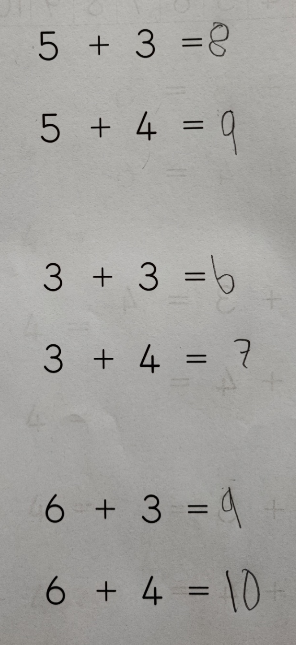 5 + 3 = 8
5 + 4 = 9
3 + 3 = 6
3 + 4 = 7
6 + 3 = 9
6 + 4 = 10